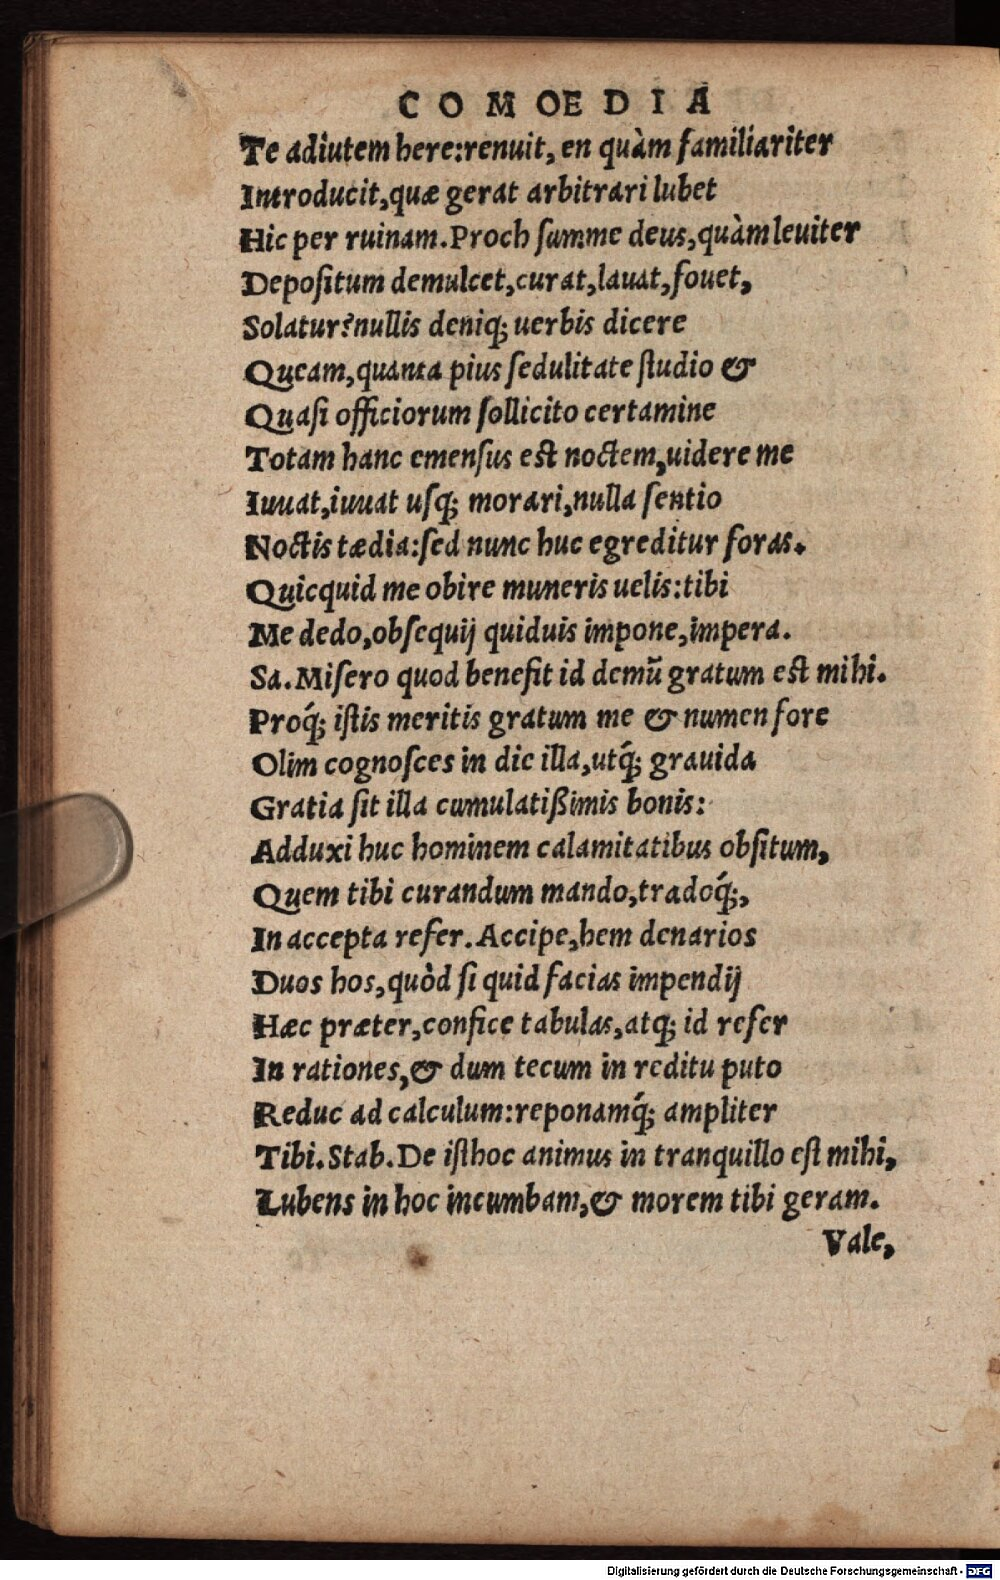 COMOEDIA
Te adiutem here:renuit, en quàm familiariter
Introducit,quæ gerat arbitrari lubet
Hic per ruinam.Proch summe deus,quàm leuiter
Depositum demulcet,curat,lauat,fouet,
Solatur?nullis deniq; uerbis dicere
Queam,quanta pius sedulitate studio &
Quasi officiorum sollicito certamine
Totam hanc emensus est noctem,uidere me
Iuuat,iuuat usq; morari,nulla sentio
Noctis tædia:sed nunc huc egreditur foras.
Quicquid me obire muneris uelis:tibi
Me dedo,obsequij quiduis impone,impera.
Sa.Misero quod benefit id demũ gratum est mihi.
Proq́; istis meritis gratum me & numen fore
Olim cognosces in die illa,utq́; grauida
Gratia sit illa cumulatißimis bonis:
Adduxi huc hominem calamitatibus obsitum,
Quem tibi curandum mando,tradoq́;,
In accepta refer.Accipe,hem denarios
Duos hos,quòd si quid facias impendij
Hæc præter,confice tabulas,atq; id refer
In rationes,& dum tecum in reditu puto
Reduc ad calculum:reponamq́; ampliter
Tibi.Stab.De isthoc animus in tranquillo est mihi,
Lubens in hoc incumbam,& morem tibi geram.
Vale,
Digitalisierung gefördert durch die Deutsche Forschungsgemeinschaft - DFG